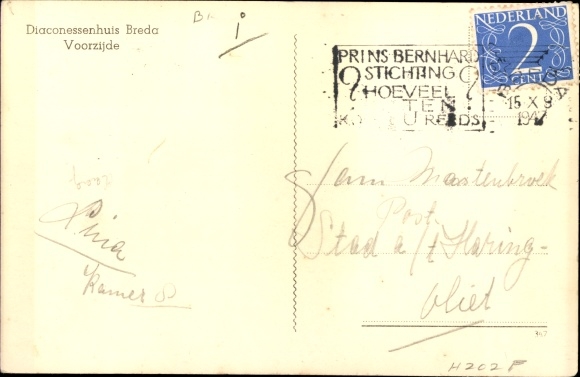 Diaconessenhuis Breda
Voorzijde
i
NEDERLAND
2
CENT
PRINS BERNHARD
STICHTING
HOEVEEL
TEN
REEDS
15 X 8
1947
Mastenbroek
Post
Stad a/t Haring-
vliet
Kamer 8
H202F